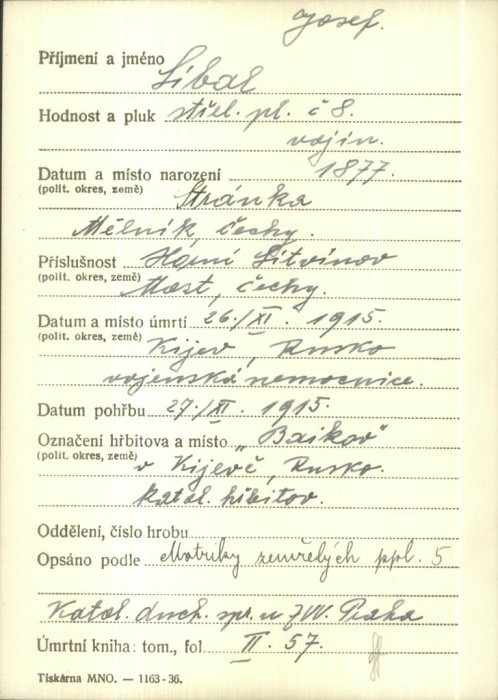 Josef.
Příjmení a jméno Libal
Hodnost a pluk střel. pl. č 8.
vojín.
Datum a místo narození 1877.
(polit. okres, země) Stránka
Mělník, Čechy.
Příslušnost Horní Litvínov
(polit. okres, země) Most, Čechy.
Datum a místo úmrtí 26./XI. 1915.
(polit. okres, země) Kijev, Rusko
vojenská nemocnice.
Datum pohřbu 27./XI. 1915.
Označení hřbitova a místo „Baikov"
(polit. okres, země) v Kijevě, Rusko.
katol. hřbitov.
Oddělení, číslo hrobu
Opsáno podle Matriky zemřelých ppl. 5
Katol. duch. spr. u ZVV. Praha
Úmrtní kniha: tom., fol. II. 57.
Tiskárna MNO. — 1163-36.